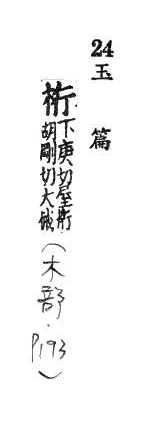 24 玉篇
桁 下庚切屋桁
胡剛切大械
(木部·P193)